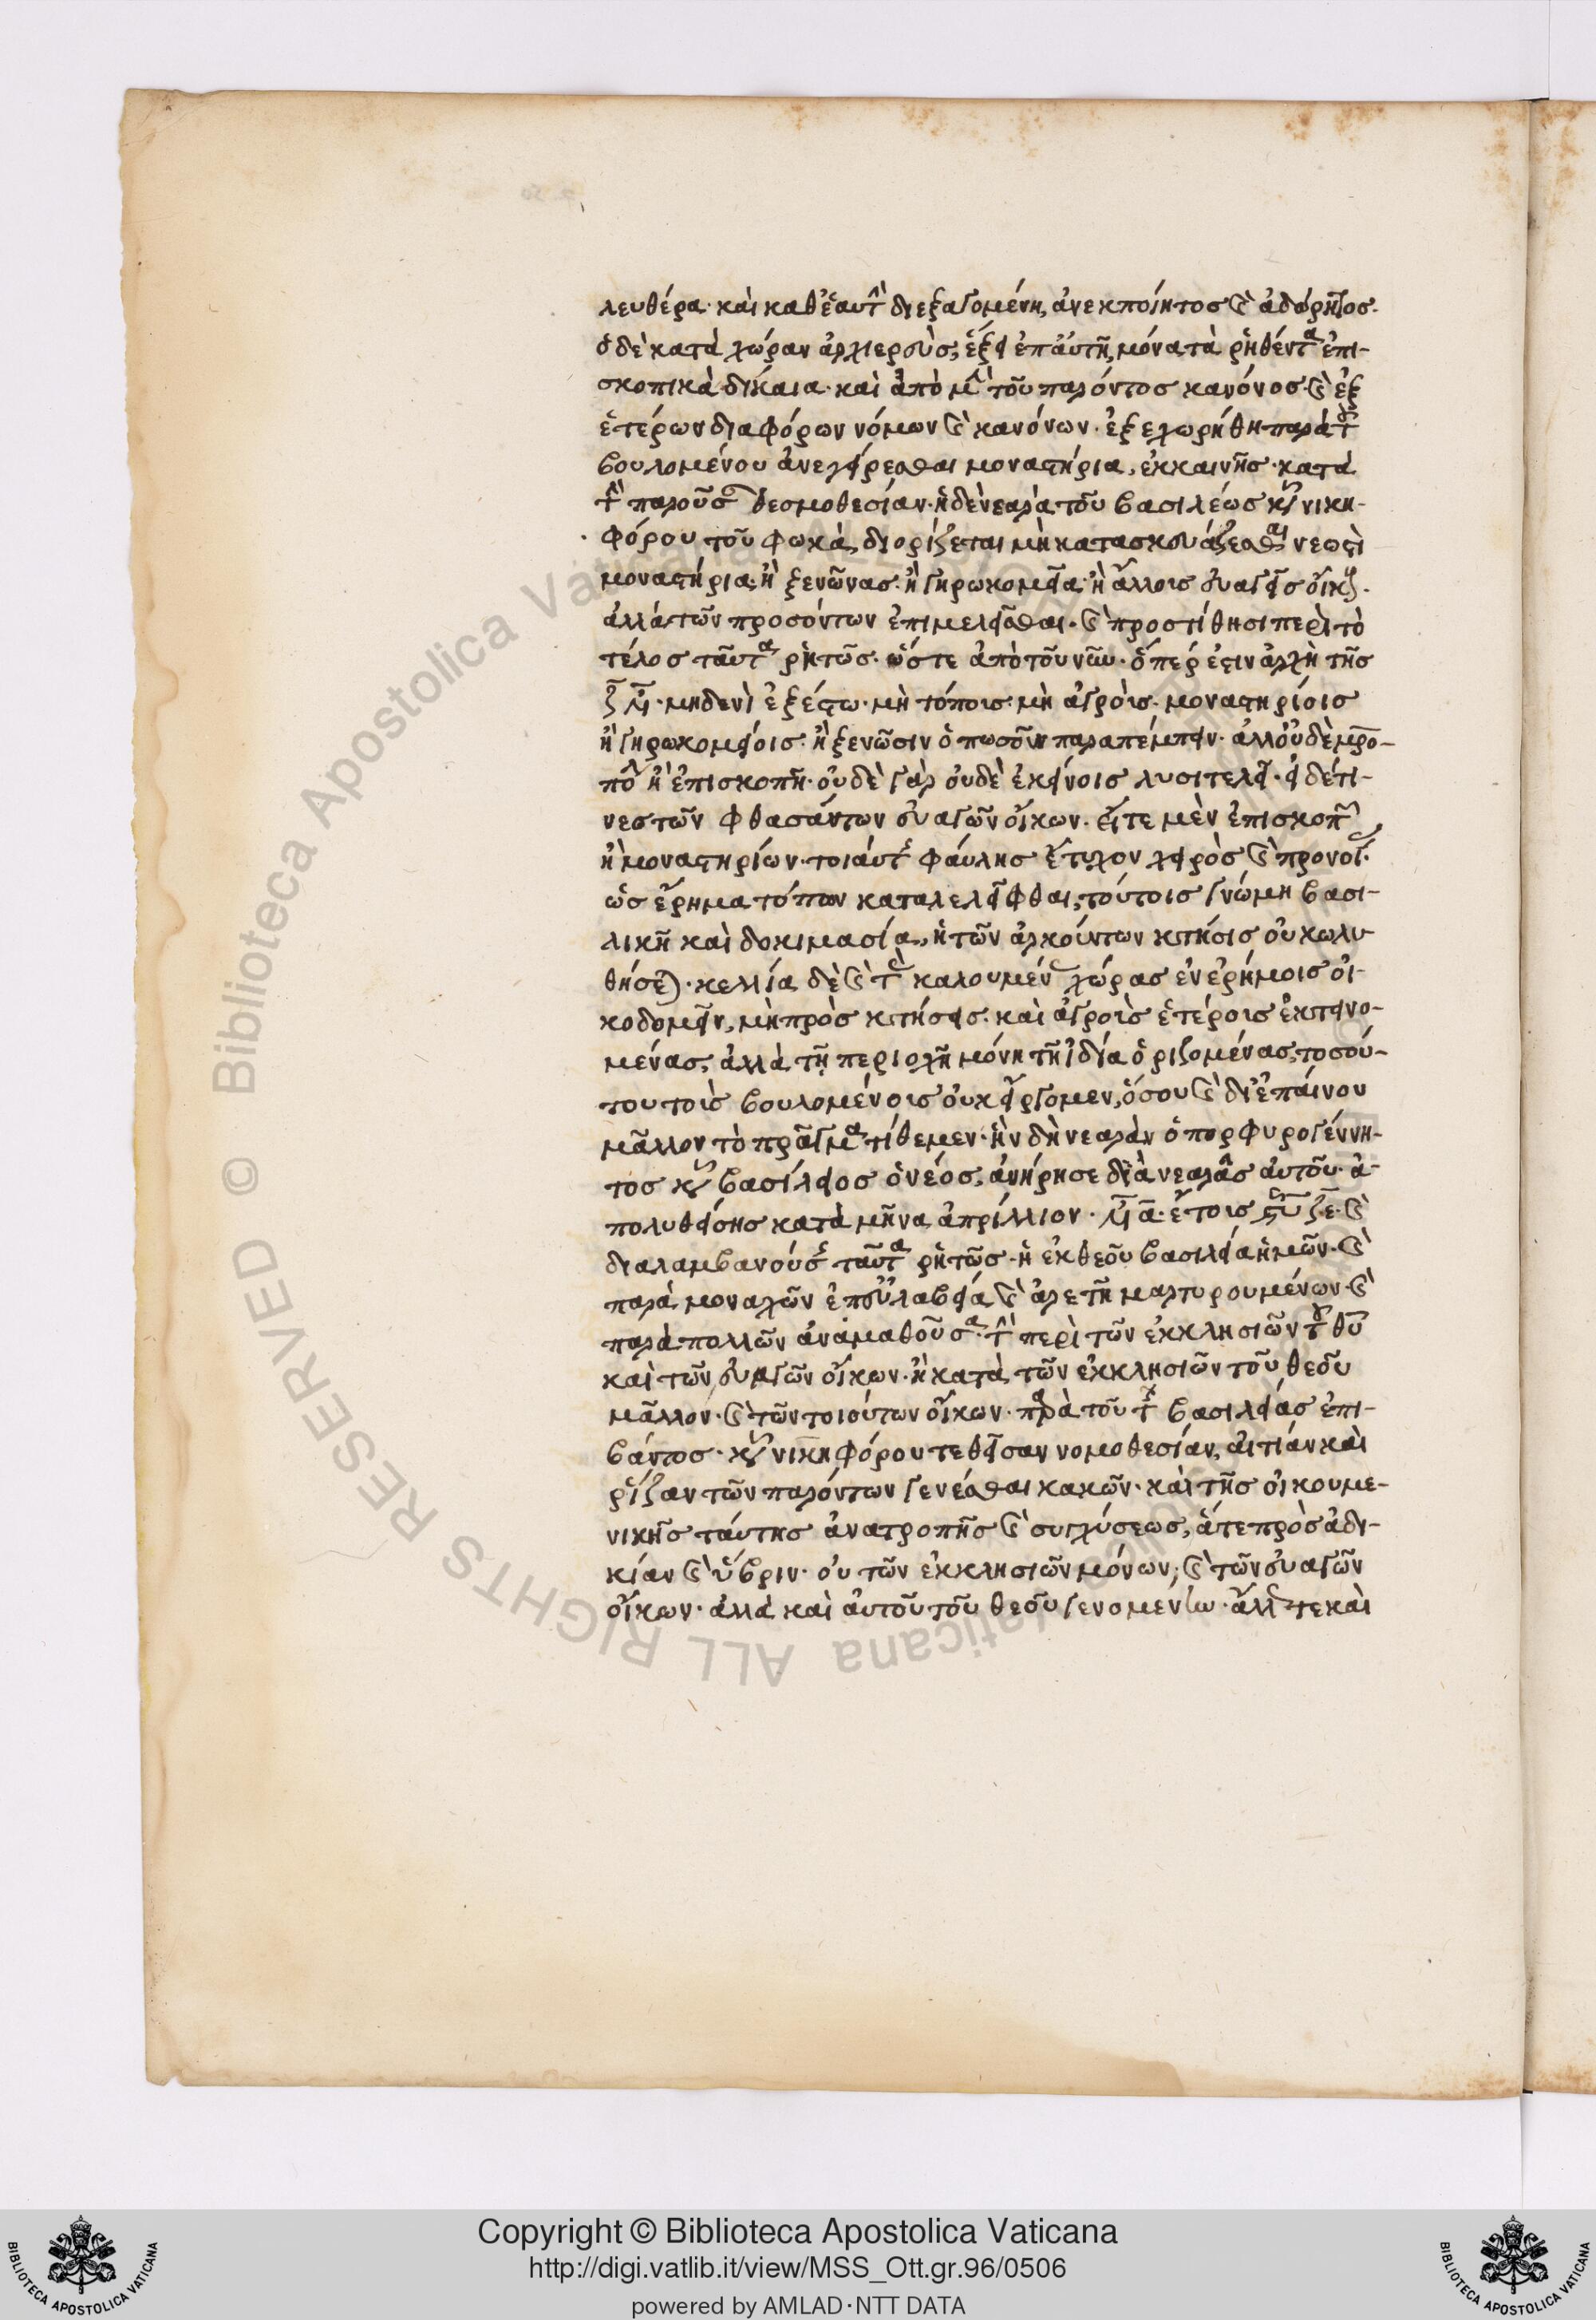 λευθέρα· καὶ καθ' ἑαυτὴν διεξαγομένη, ἀνεκποίητος καὶ ἀδώρητος.
ὁ δὲ κατὰ χώραν ἀρχιερεὺς, ἕξει ἐπ' αὐτῇ, μόνα τὰ ῥηθέντα ἐπι-
σκοπικὰ δίκαια· καὶ ἀπὸ μὲν τοῦ παρόντος κανόνος· καὶ ἐξ
ἑτέρων διαφόρων νόμων καὶ κανόνων· ἐξεχωρήθη παρὰ τοῦ
βουλομένου ἀνεγείρεσθαι μοναστήρια, ἐκ καινῆς· κατὰ
τὴν παροῦσαν θεσμοθεσίαν· ἡ δὲ νεαρὰ τοῦ βασιλέως κυροῦ νικη-
φόρου τοῦ φωκᾶ, διορίζεται μὴ κατασκευάζεσθαι νεωστὶ
μοναστήρια· ἢ ξενῶνας· ἢ γηρωκομεῖα· ἢ ἄλλοις εὐαγεῖς οἴκους·
ἀλλὰ τῶν προσόντων ἐπιμελεῖσθαι· καὶ προστίθησι περὶ τὸ
τέλος ταῦτα ῥητῶς· ὥστε ἀπὸ τοῦ νῦν· ὅπερ ἐστιν ἀρχὴ τῆς
ζ ἰν· μηδενὶ ἐξέστω· μὴ τόποις· μὴ ἀγροῖς· μοναστηρίοις
ἢ γηρωκομείοις· ἢ ξενῶσιν ὁπωσοῦν παραπέμπειν· ἀλλ' οὐδὲ μρο-
πόλει ἢ ἐπισκοπῇ· οὐδὲ γὰρ οὐδὲ ἐκείνοις λυσιτελεῖ· εἰ δέ τι-
νες τῶν φθασάντων εὐαγῶν οἴκων· εἴτε μὲν ἐπισκοπῶν
ἢ μοναστηρίων· τοιαύτης φαύλης ἔτυχον χειρὸς καὶ προνοίας·
ὡς ἔρημα τόπων καταλελεῖφθαι, τούτοις γνώμη βασι-
λικῇ καὶ δοκιμασία, ἡ τῶν ἀρκούντων κτήσις οὐ κωλυ-
θήσεται· κελλία δὲ καὶ τὰς καλουμένας χώρας ἐν ἐρήμοις οἰ-
κοδομεῖν, μὴ πρὸς κτήσεις· καὶ ἀγροὺς ἑτέροις ἐκτεινο-
μένας, ἀλλὰ τῇ περιοχῇ μόνη τῇ ἰδία ὁριζομένας, τοσού-
του τοῖς βουλομένοις οὐκ εἴργομεν, ὅσου καὶ δι' ἐπαίνου
μᾶλλον τὸ πρᾶγμα τίθεμεν· ἣν δὴ νεαρὰν ὁ πορφυρογέννη-
τος κυρὸς βασίλειος ὁ νέος, ἀνήρησε διὰ νεαρᾶς αὐτοῦ· ἀ-
πολυθείσης κατὰ μῆνα ἀπρίλλιον· ἰν α· ἔτοις ϛυζε· καὶ
διαλαμβανούσης ταῦτα ῥητῶς· ἡ ἐκ θεοῦ βασιλεία ἡμῶν· καὶ
παρὰ μοναχῶν ἐπ' εὐλαβεία καὶ ἀρετῇ μαρτυρουμένων· καὶ
παρὰ πολλῶν ἀναμαθοῦσα· τὴν περὶ τῶν ἐκκλησιῶν τοῦ θυ
καὶ τῶν εὐαγῶν οἴκων· ἢ κατὰ τῶν ἐκκλησιῶν τοῦ θεοῦ
μᾶλλον· καὶ τῶν τοιούτων οἴκων· παρὰ τοῦ τῆς βασιλείας ἐπι-
βάντος· κυροῦ νικηφόρου τεθεῖσαν νομοθεσίαν, αἰτίαν καὶ
ῥίζαν τῶν παρόντων γενέσθαι κακῶν· καὶ τῆς οἰκουμε-
νικῆς ταύτης ἀνατροπῆς καὶ συγχύσεως, ἅτε πρὸς ἀδι-
κίαν καὶ ὕβριν· οὐ τῶν ἐκκλησιῶν μόνων, καὶ τῶν εὐαγῶν
οἴκων· ἀλλὰ καὶ αὐτοῦ τοῦ θεοῦ γενομένην· ἄλλως τε καὶ